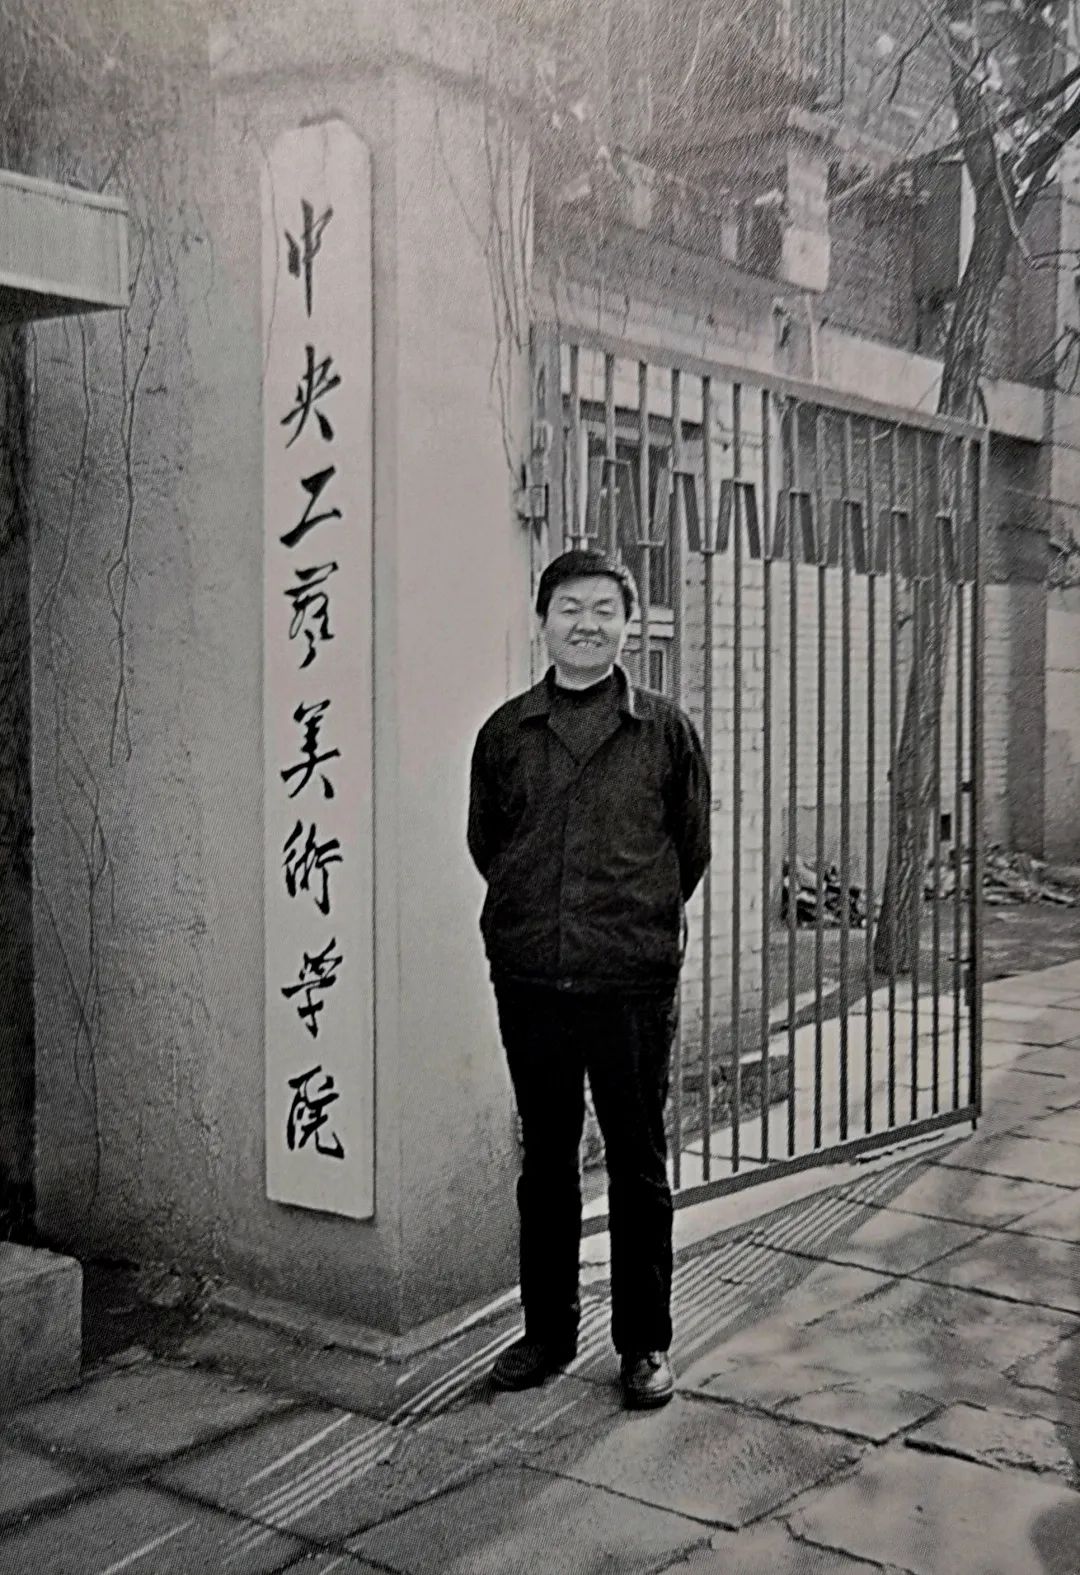 中央工藝美術学院